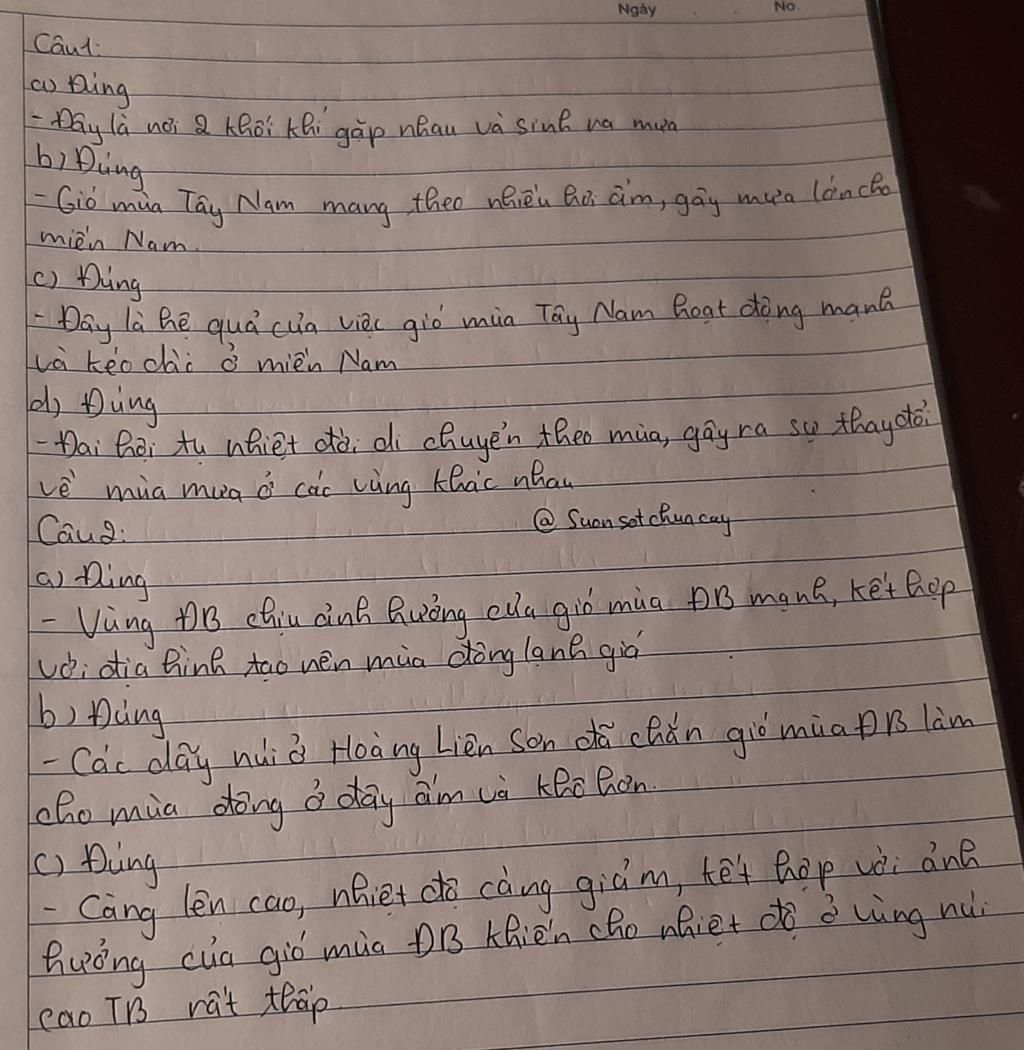 Ngày No.
Câu1:
a) Đúng
- Đây là nơi 2 khối khí gặp nhau và sinh ra mưa
b) Đúng
- Gió mùa Tây Nam mang theo nhiều hơi ẩm, gây mưa lớn cho
miền Nam.
c) Đúng
- Đây là hệ quả của việc gió mùa Tây Nam hoạt động mạnh
và kéo dài ở miền Nam
d) Đúng
- Dai hội tụ nhiệt đới di chuyển theo mùa, gây ra sự thay đổi
về mùa mưa ở các vùng khác nhau
Câu2: @ Suonsotchuacay
a) Đúng
- Vùng ĐB chịu ảnh hưởng của gió mùa ĐB mạnh, kết hợp
với địa hình tạo nên mùa đông lạnh giá
b) Đúng
- Các dãy núi ở Hoàng Liên Sơn đã chắn gió mùa ĐB làm
cho mùa đông ở đây ấm và khô hơn.
c) Đúng
- Càng lên cao, nhiệt độ càng giảm, kết hợp với ảnh
hưởng của gió mùa ĐB khiến cho nhiệt độ ở vùng núi
cao TB rất thấp